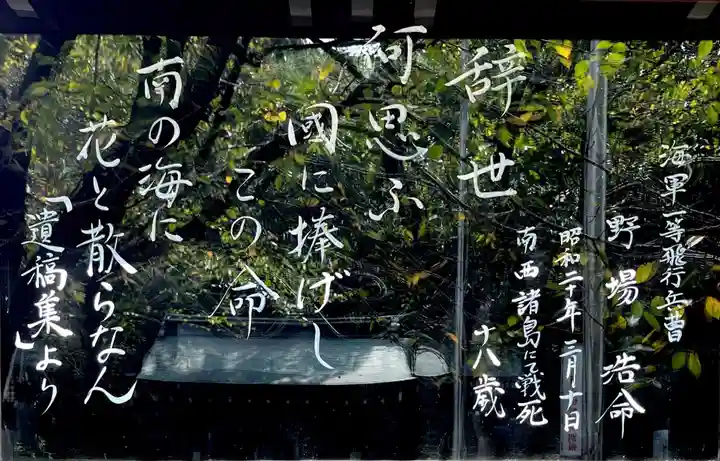 海軍一等飛行兵曹
野場浩命
昭和二十年三月十日
南西諸島にて戦死
十八歳
辞世
何思ふ
國に捧げし
この命
南の海に
花と散らなん
「遺稿集より」